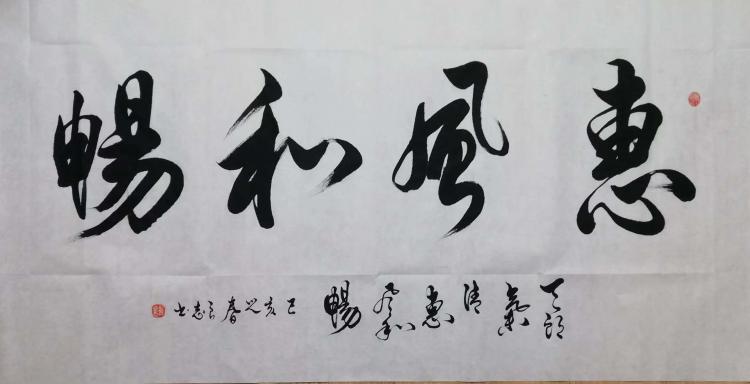 惠風和暢
天朗氣清惠風和暢
己亥之春 志書